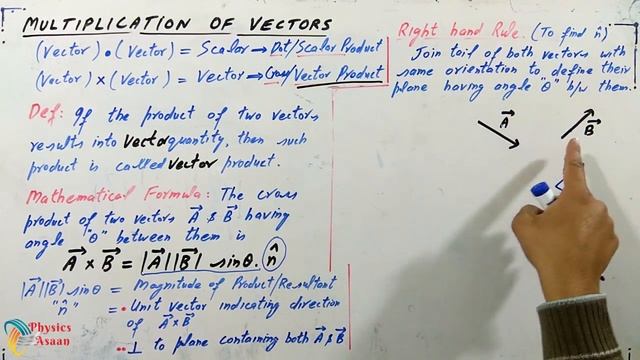 MULTIPLICATION OF VECTORS
(Vector) • (Vector) = Scalar → Dot/Scalar Product
(Vector) × (Vector) = Vector → Cross/Vector Product
Def: If the product of two vectors
results into Vector quantity, then such
product is called Vector product.
Mathematical Formula: The cross
product of two vectors A⃗ & B⃗ having
angle "θ" between them is
A⃗ × B⃗ = |A⃗||B⃗| sinθ. n̂
|A⃗||B⃗| sinθ = Magnitude of Product/Resultant
"n̂" = • Unit vector indicating direction
of A⃗×B⃗
•• ⊥ to plane containing both A⃗ & B⃗
Right hand Rule. (To find n̂)
Join tail of both vectors with
same orientation to define their
plane having angle "θ" b/w them.
A⃗
B⃗
Physics
Asaan